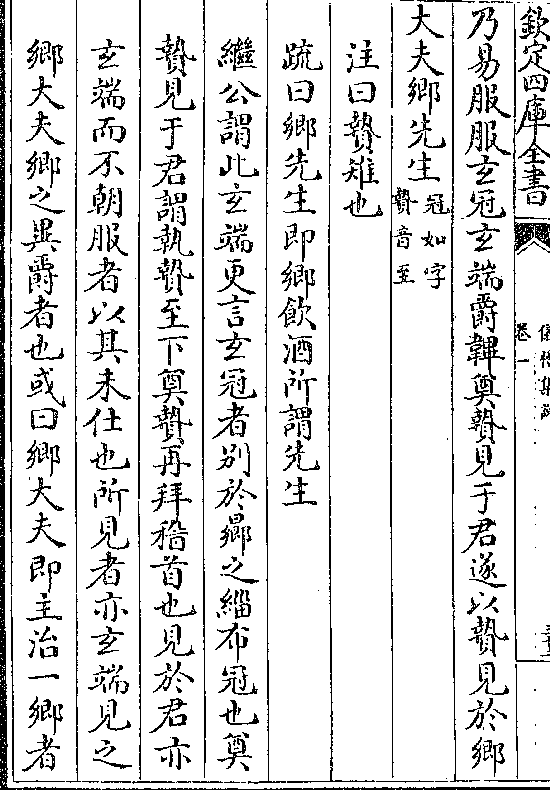 欽定四庫全書
卷一
乃易服服玄冠玄端爵韠奠贄見于君遂以贄見於鄉
大夫鄉先生冠如字
贄音至
注曰贄雉也
疏曰鄉先生即鄉飲酒所謂先生
繼公謂此玄端更言玄冠者别於曏之緇布冠也奠
贄見于君謂執贄至下奠贄再拜稽首也見於君亦
玄端而不朝服者以其未仕也所見者亦玄端見之
鄉大夫鄉之異爵者也或曰鄉大夫即主治一鄉者